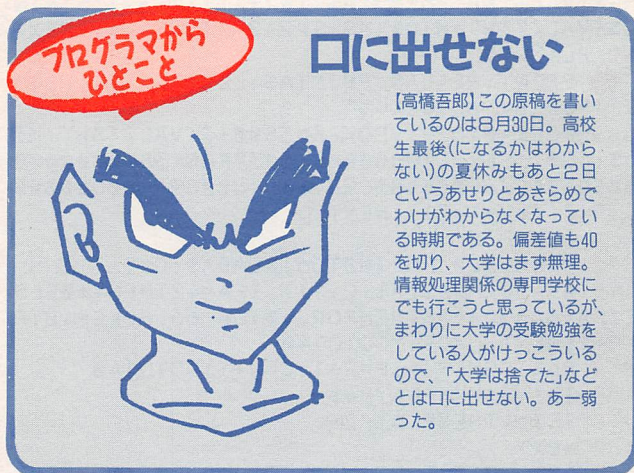 プログラマから
ひとこと
口に出せない
【高橋吾郎】この原稿を書い
ているのは8月30日。高校
生最後(になるかはわから
ない)の夏休みもあと2日
というあせりとあきらめで
わけがわからなくなってい
る時期である。偏差値も40
を切り、大学はまず無理。
情報処理関係の専門学校に
でも行こうと思っているが、
まわりに大学の受験勉強を
している人がけっこういる
ので、「大学は捨てた」など
とは口に出せない。あー弱
った。